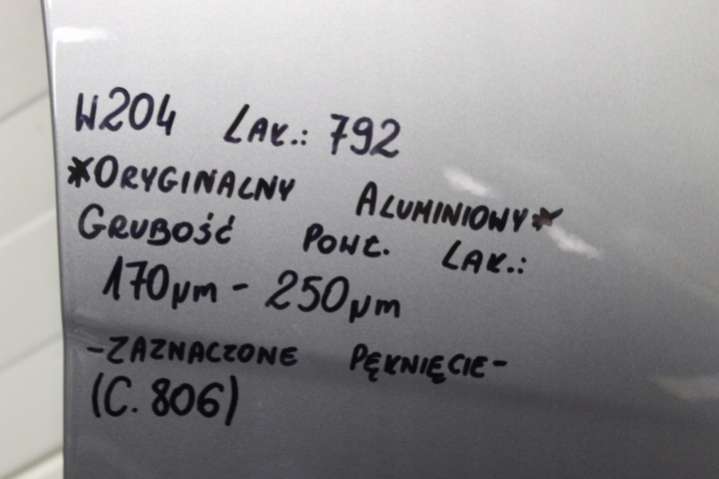 W204 LAK.: 792
*ORYGINALNY ALUMINIOWY*
GRUBOŚĆ POWŁ. LAK.:
170µm - 250µm
-ZAZNACZONE PĘKNIĘCIE-
(C. 806)